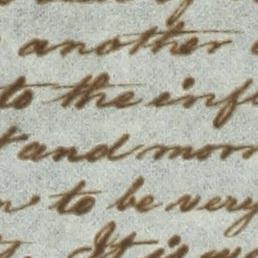 another
to the inf
and morn
to be very
It is